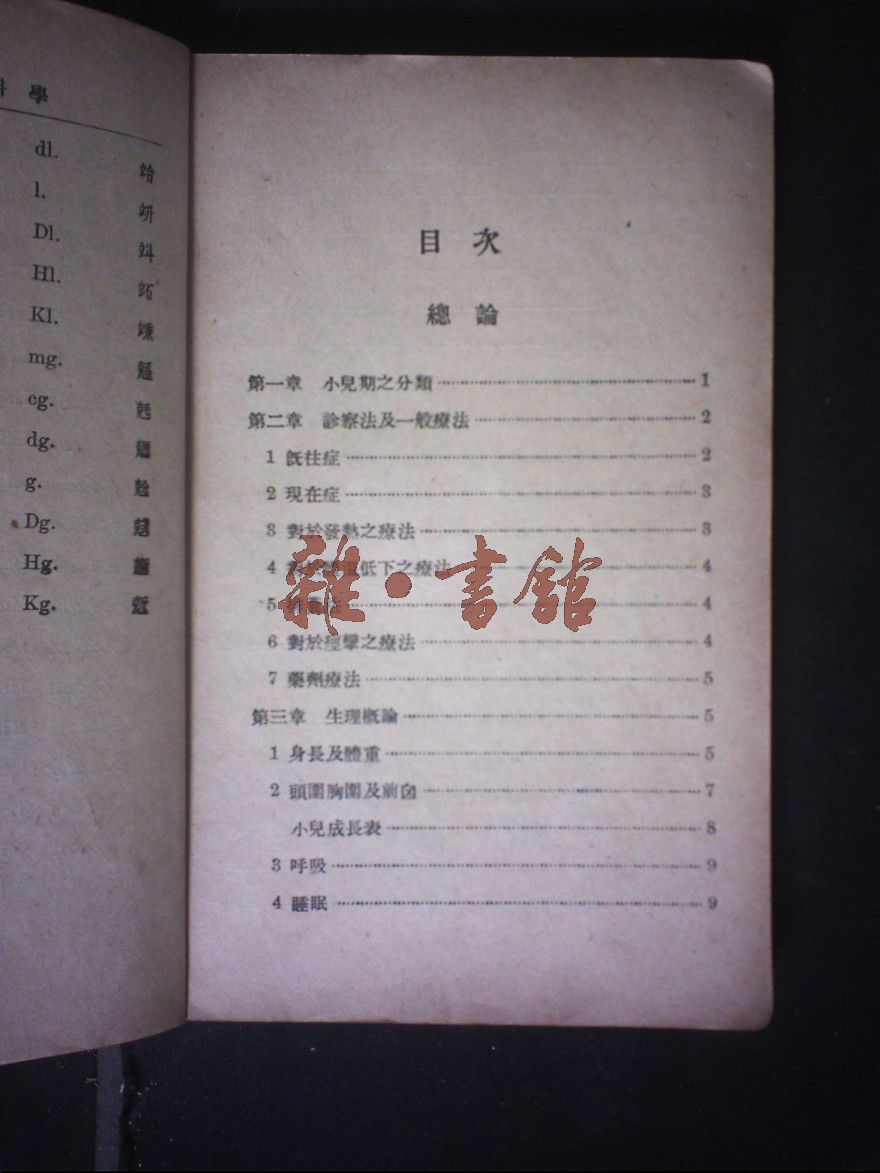 學
dl.
l.
Dl.
Hl.
Kl.
mg.
cg.
dg.
g.
Dg.
Hg.
Kg.
目次
總論
第一章 小兒期之分類 1
第二章 診察法及一般療法 2
1 旣往症 2
2 現在症 3
3 對於發熱之療法 3
4 對於體溫低下之療法 4
5 4
6 對於痙攣之療法 4
7 藥劑療法 5
第三章 生理概論 5
1 身長及體重 5
2 頭圍胸圍及前囟 7
小兒成長表 8
3 呼吸 9
4 睡眠 9
雜·書館